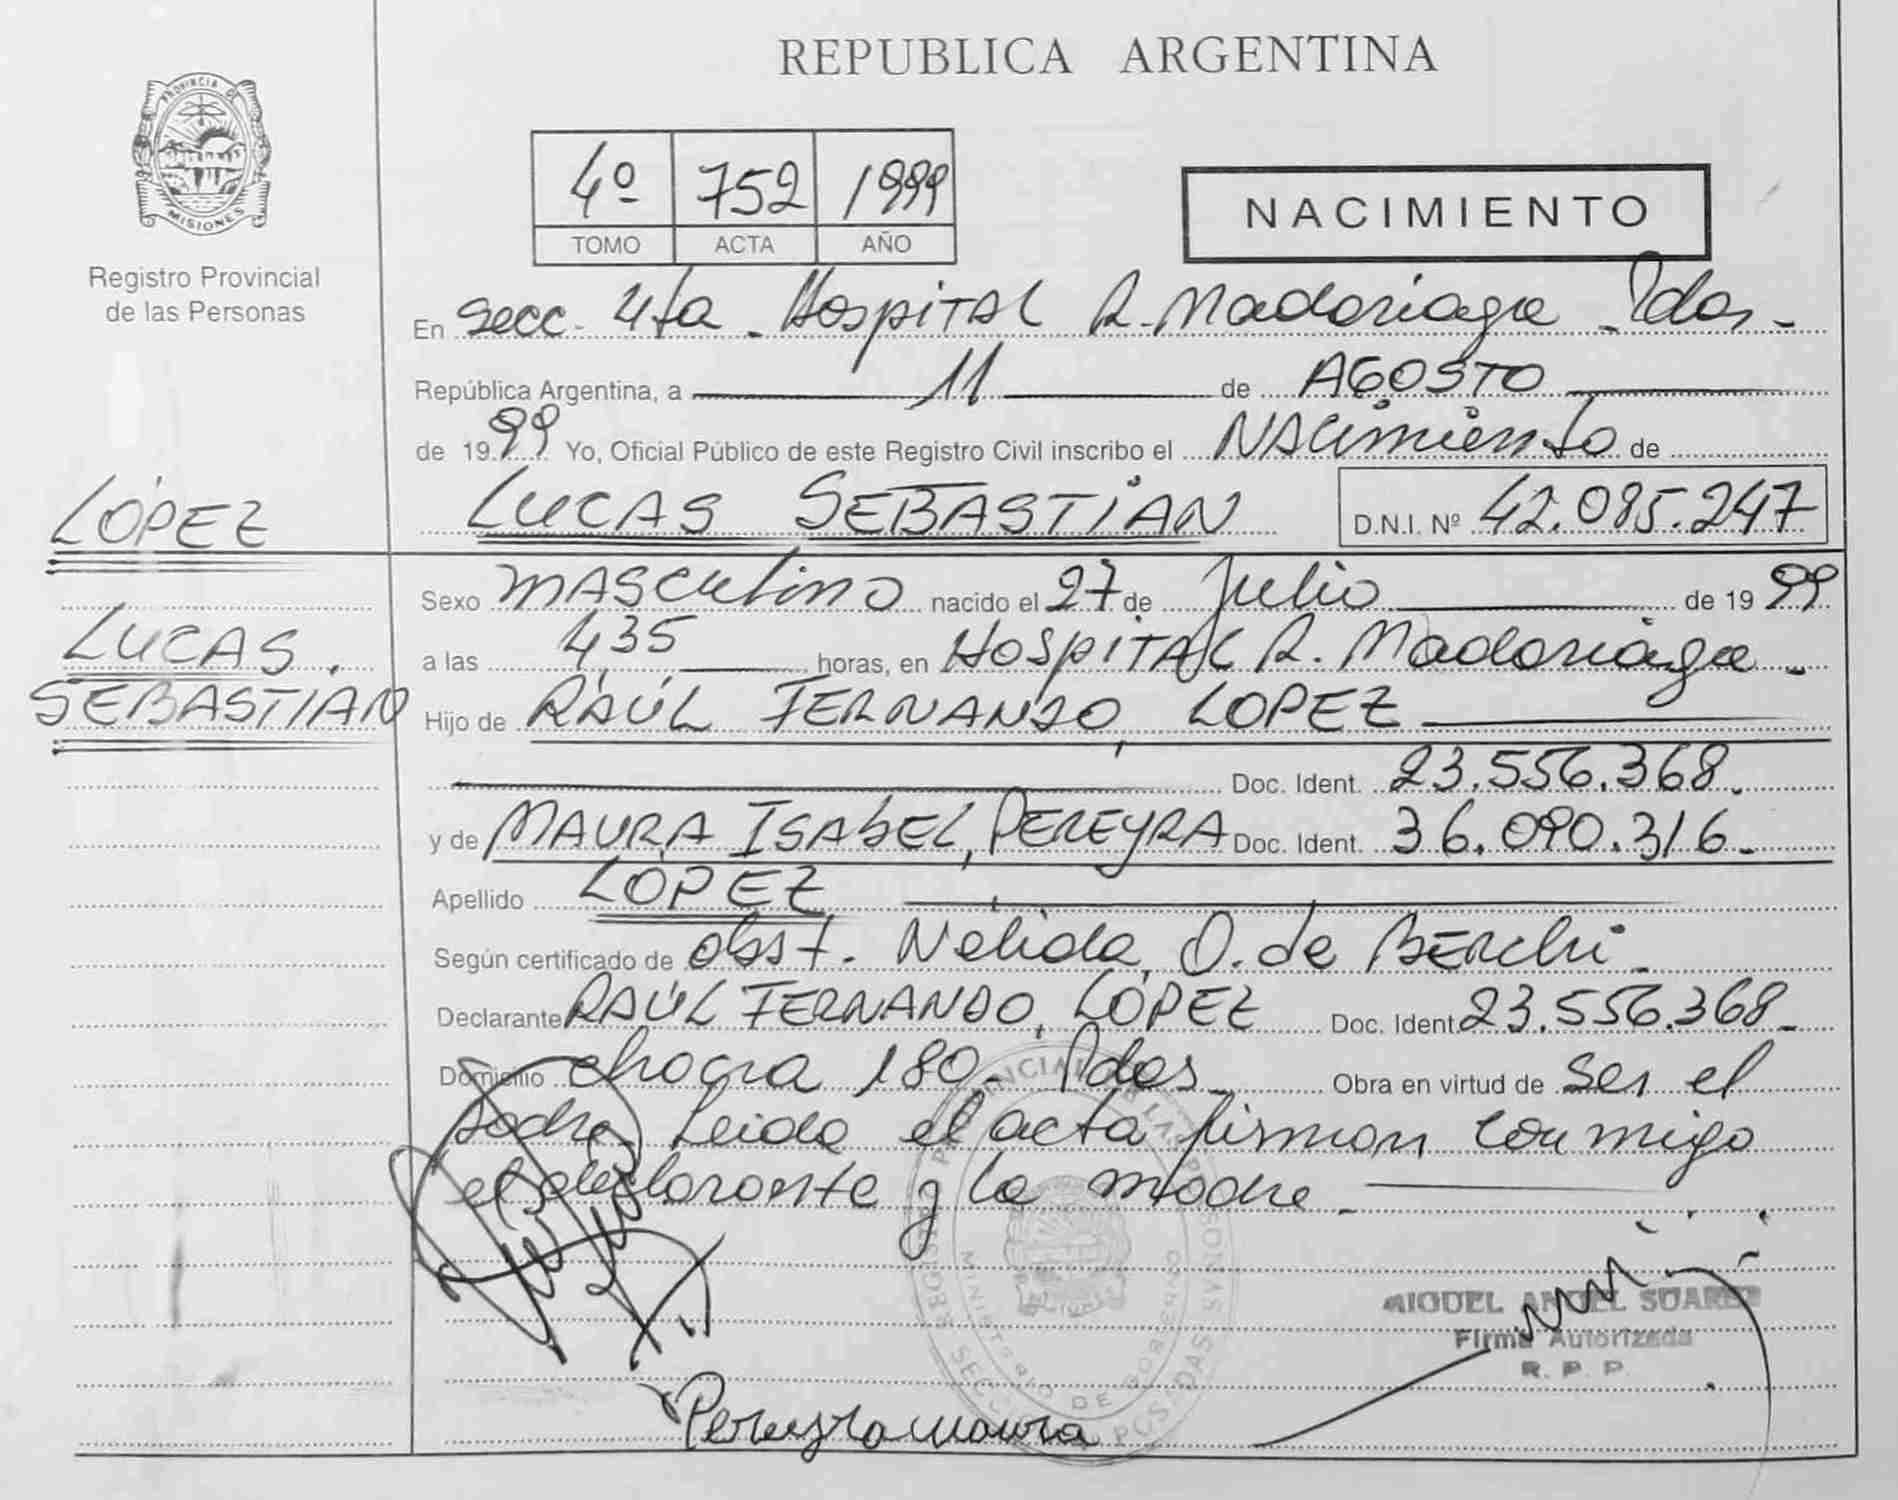 REPUBLICA ARGENTINA
PROVINCIA DE MISIONES
Registro Provincial
de las Personas
4º 752 1999
TOMO ACTA AÑO
NACIMIENTO
En Secc. 4ta. Hospital R. Madariaga - Pdas -
República Argentina, a 11 de AGOSTO
de 1999 Yo, Oficial Público de este Registro Civil inscribo el NACimiento de
LÓPEZ
LUCAS SEBASTIAN D.N.I. Nº 42.085.247
Sexo MASCulino nacido el 27 de Julio de 1999
LUCAS
a las 4,35 horas, en HOSPITAL R. Madariaga -
SEBASTIAN
Hijo de RAÚL FERNANDO, LOPEZ
Doc. Ident. 23.556.368.
y de MAURA ISABEL, PEREYRA Doc. Ident. 36.090.316.
Apellido LÓPEZ
Según certificado de obst. Nélida O. de BERchi
Declarante RAÚL FERNANDO, LÓPEZ Doc. Ident. 23.556.368 -
Domicilio chacra 180 - Pdas - Obra en virtud de ser el
padre. Leida el acta firman conmigo
el declarante y la madre.
MIGUEL ANGEL SUAREZ
Firma Autorizada
R. P. P.
Pereyra Maura